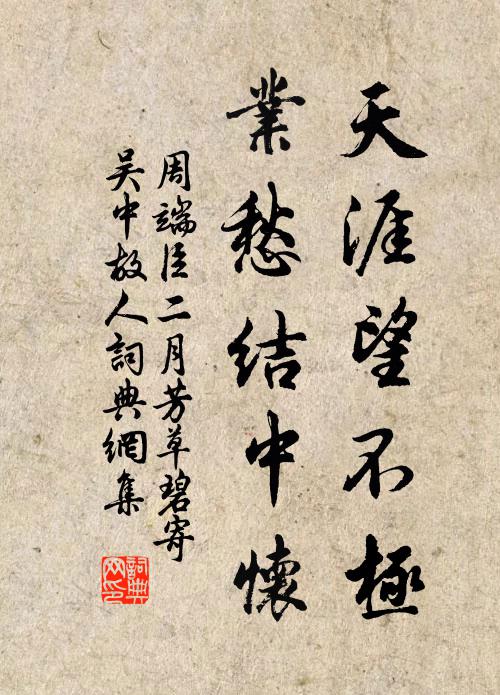 天涯望不極
業愁結中懷
周端臣二月芳草碧寄
吴中故人詞典網集
詞典
网印